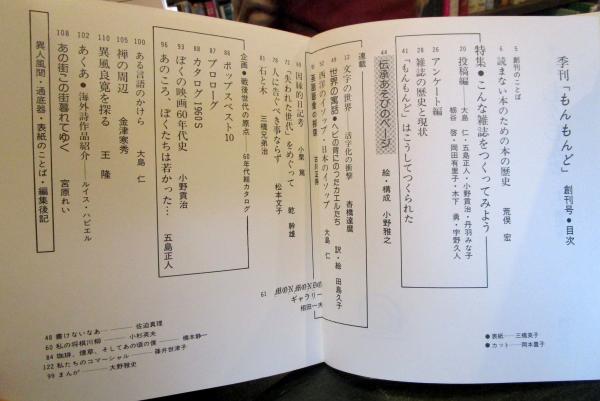 季刊「もんもんど」 創刊号●目次
5 創刊のことば
6 読まない本のための本の歴史 荒俣 宏
特集●こんな雑誌をつくってみよう
20 投稿編 大島 仁・五島正人・小野貢治・丹羽みな子
栃谷 啓・岡田有里子・木下 勇・宇野久人
26 アンケート編
28 雑誌の歴史と現状
41 『もんもんど』はこうしてつくられた
44 伝承あそびのページ 絵・構成 小野雅之
連載
12 文字の世界 活字化の衝撃 杏橋達磨
49 世界の寓話●ヘビの背にのったカエルたち 訳・絵 田島久子
52 西洋のイソップ/日本のイソップ 大島 仁
61 MONMONDO
ギャラリー
相田一夫
因縁的日記考 小栗 篤
71 “失われた世代”をめぐって 乾 幹雄
人に告ぐべき事ならず 松本文子
81 石と木 三橋兄弟治
企画●戦後世代の原点 60年代総カタログ
86 ポップスベスト10
87 プロローグ
88 カタログ1960S
93 ぼくの映画60年代史 小野貢治
96 あのころ、ぼくたちは若かった… 五島正人
100 ある言語のかけら 大島 仁
105 禅の周辺 金津寒秀
110 異風良寛を探る 王 隆
102 あくあ●海外詩作品紹介 ルイス・ハビエル
108 あの街この街暮れてゆく 宮原れい
異人風聞・通底器・表紙のことば・編集後記
48 書けないなあ… 佐迫真理
60 私の将棋川柳 小杉英夫
84 珈琲、煙草、そしてあの頃の僕 橋本静一
122 私たちのコマーシャル 篠井世津子
99 まんが 大野雅史
●表紙 三橋英子
●カット 岡本量子